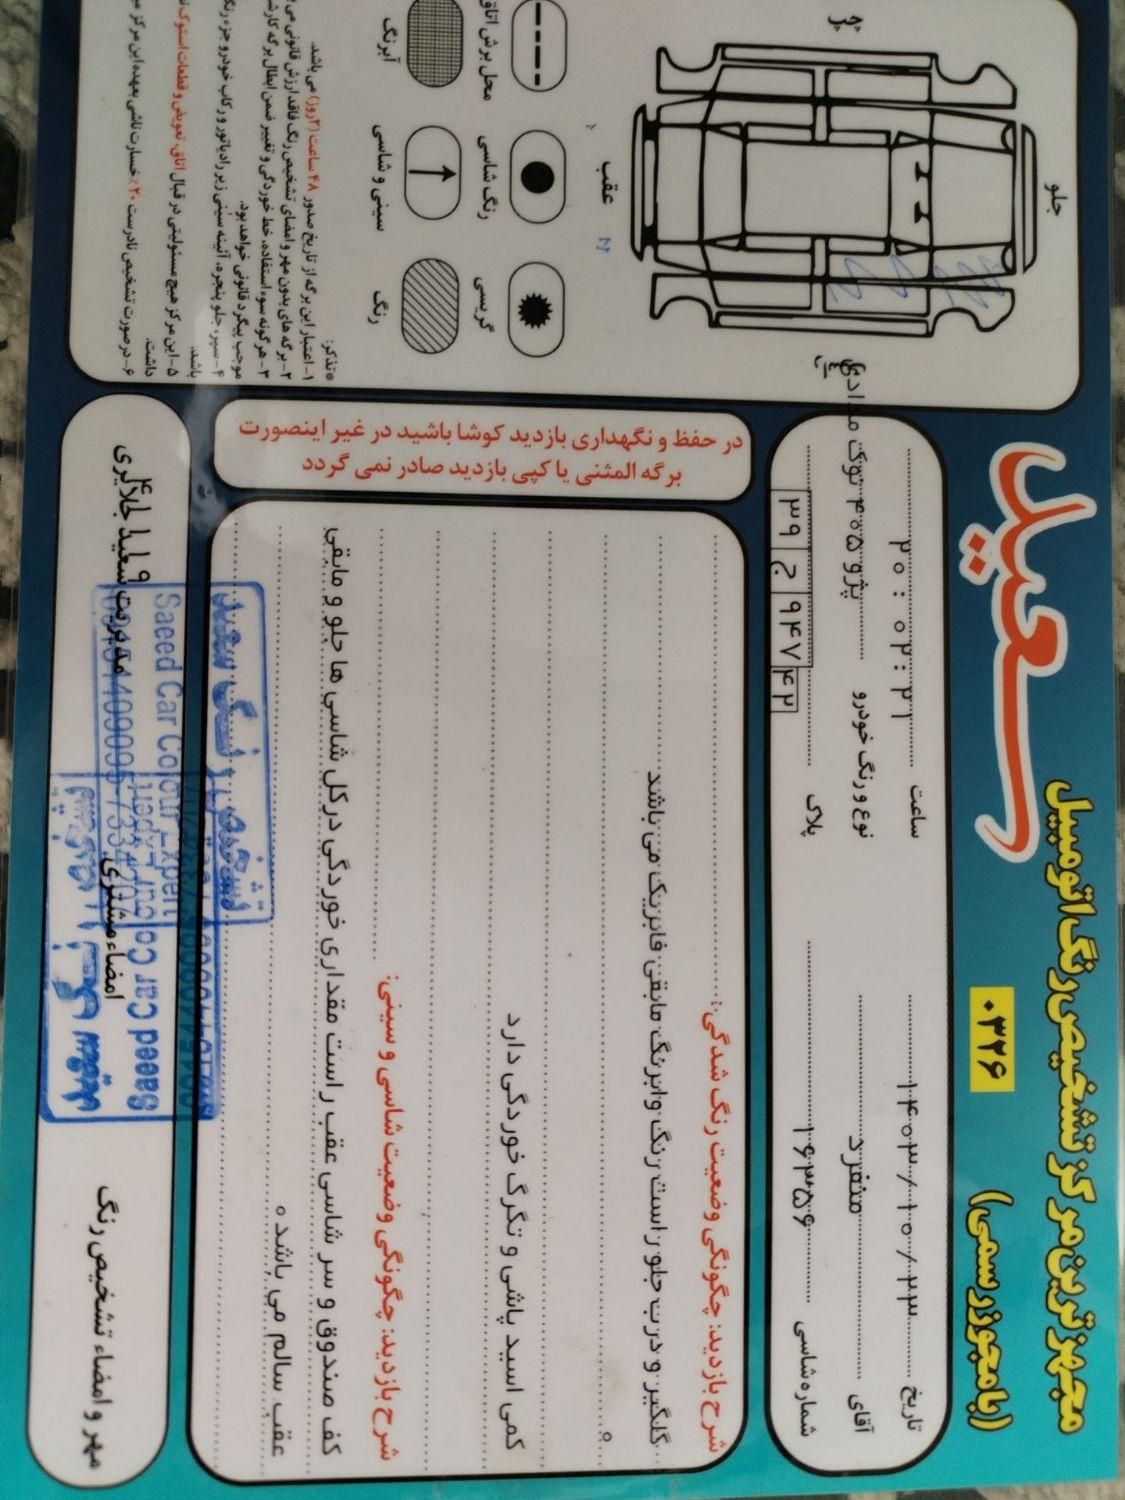 مجهز ترین مرکز تشخیص رنگ اتومبیل
(با مجوز رسمی)
۰۳۲۶
سعید
تاریخ ۱۴۰۳/۱۰/۲۳
ساعت ۲۰:۰۲:۲۱
آقای منفرد
نوع و رنگ خودرو پژو ۴۰۵ نوک مدادی
شماره شاسی ۱۶۳۵۶
پلاک ۳۹ ج ۹۴۷ ۴۲
جلو
عقب
شرح بازدید: چگونگی وضعیت رنگ شدگی:
گلگیر و درب جلو راست رنگ وابرنگ مابقی فابرنگ می باشد
کمی اسید پاشی و تگرگ خوردگی دارد
شرح بازدید: چگونگی وضعیت شاسی و سینی:
کف صندوق و سر شاسی عقب راست مقداری خوردگی درکل شاسی ها جلو و مابقی
عقب سالم می باشد
در حفظ و نگهداری بازدید کوشا باشید در غیر اینصورت
برگه المثنی یا کپی بازدید صادر نمی گردد
محل برش اتاق
رنگ شاسی
گریسی
آبرنگ
سینی و شاسی
رنگ
تذکر:
۱- اعتبار این برگه از تاریخ صدور ۴۸ ساعت (۲روز) می باشد.
۲- برگه های بدون مهر و امضای تشخیص رنگ فاقد ارزش قانونی می
۳- هر گونه سوء استفاده، خط خوردگی و تغییر ضمن ابطال برگه
موجب پیگرد قانونی خواهد بود.
۴- سپر، جلو پنجره، آئینه سینی زیر رادیاتور و رکاب خودرو جزء رنگ
باشد.
۵- این مرکز هیچ مسئولیتی در قبال اتاق، تعویض و قطعات استوک
داشت.
۶- در صورت تشخیص نادرست ۲۰٪ خسارت ناشی بعهده این مرکز
مهر و امضاء تشخیص رنگ
امضاء مشتری
مدیریت سعید جلالری
تشخیص رنگ سعید
Saeed Car Colour Expert